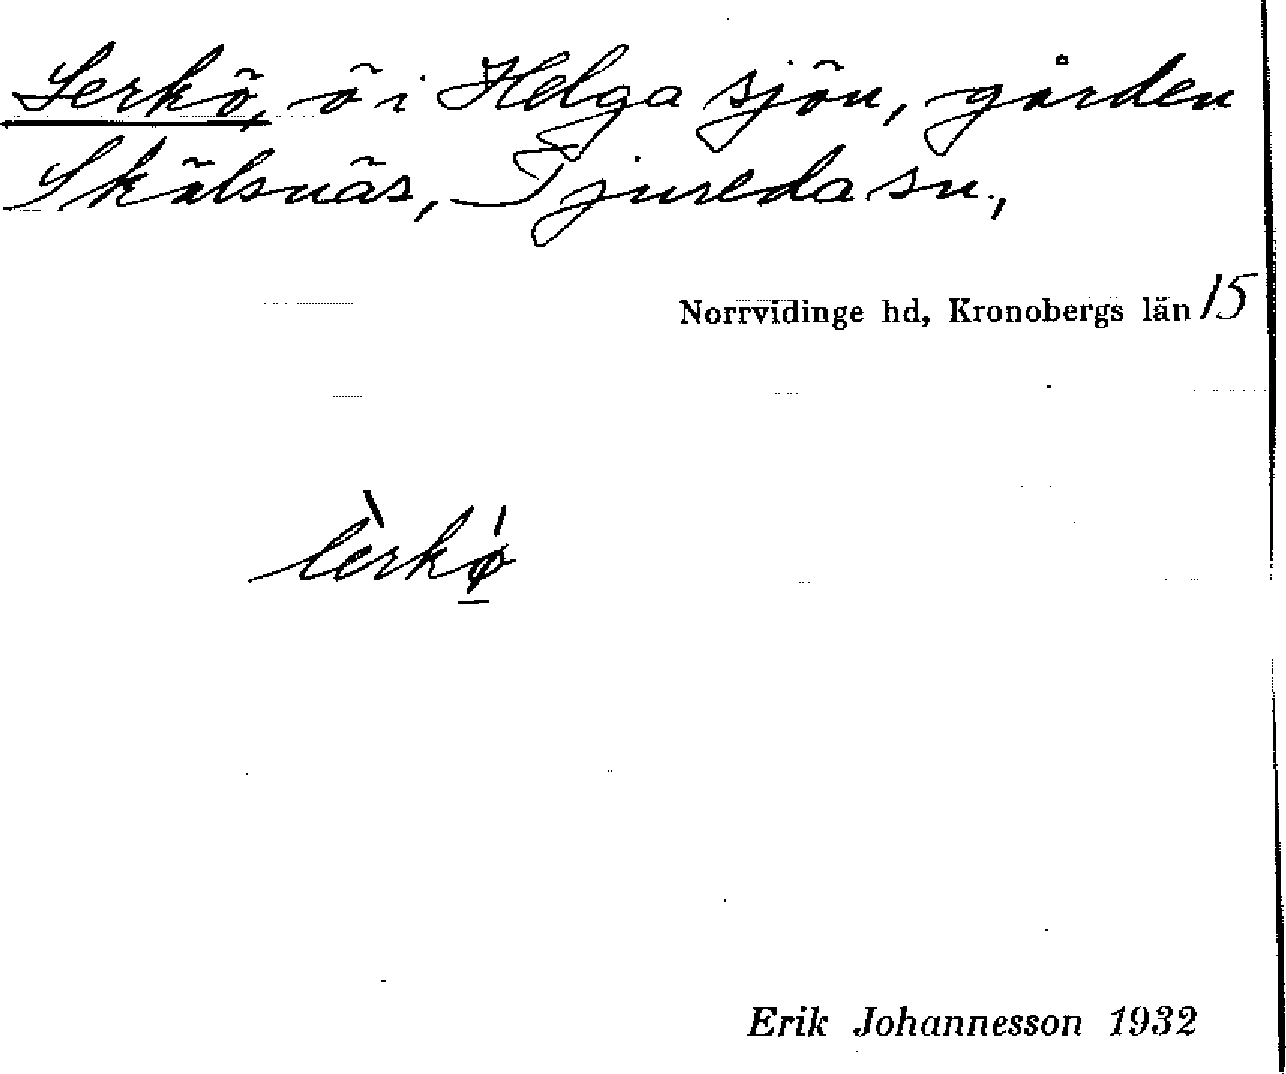 Lerkö, ö i Helga sjön, gården
Skälsnäs, Tjureda sn.,
Norrvidinge hd, Kronobergs län 15
lèrkǿ̲
Erik Johannesson 1932